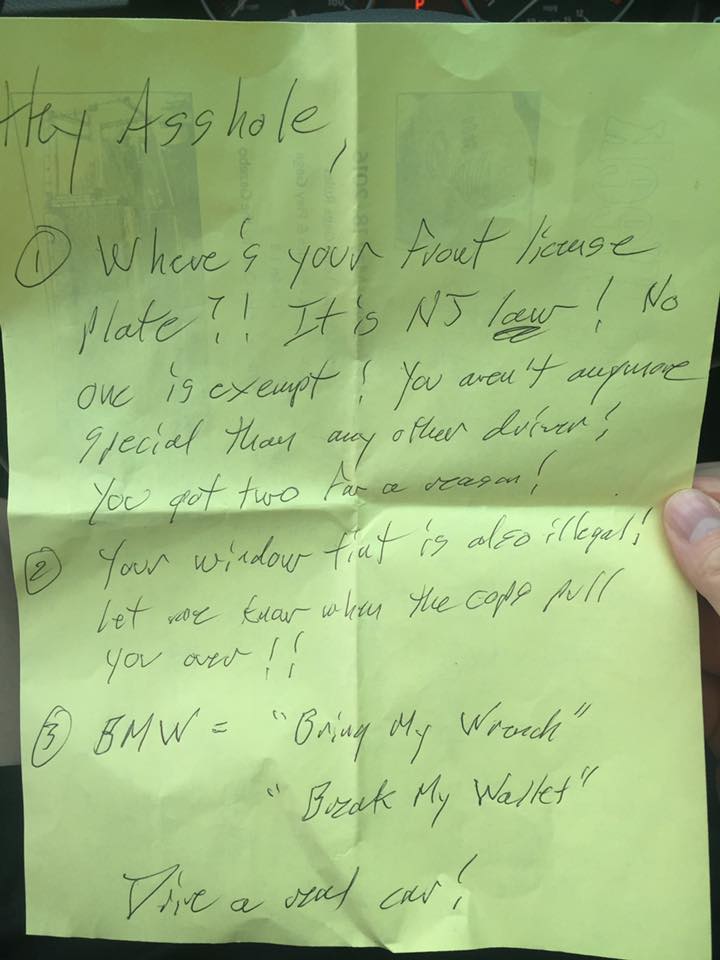 Hey Asshole,
① Where's your front license
plate?!! It is NJ law! No
one is exempt! You aren't anymore
special than any other driver!
You got two for a reason!
② Your window tint is also illegal!
Let me know when the cops pull
you over!!
③ BMW = "Bring My Wrench"
"Break My Wallet"
Drive a real car!